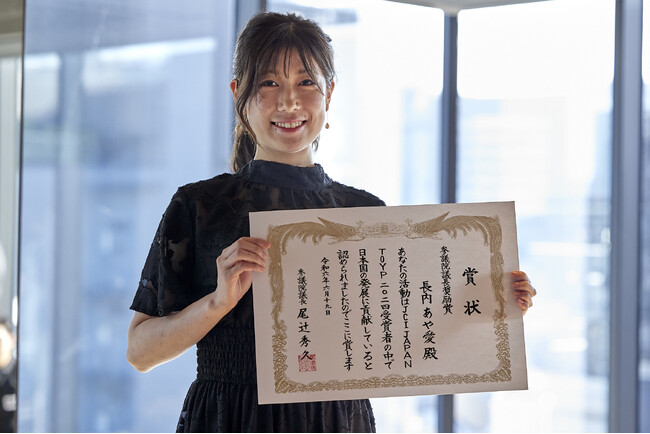 賞状
参議院議長奨励賞
長内あや愛殿
あなたの活動はJCI JAPAN
TOYP二〇二四受賞者の中で
日本国の発展に貢献していると
認められましたのでここに賞します
令和六年六月十九日
参議院議長 尾辻秀久